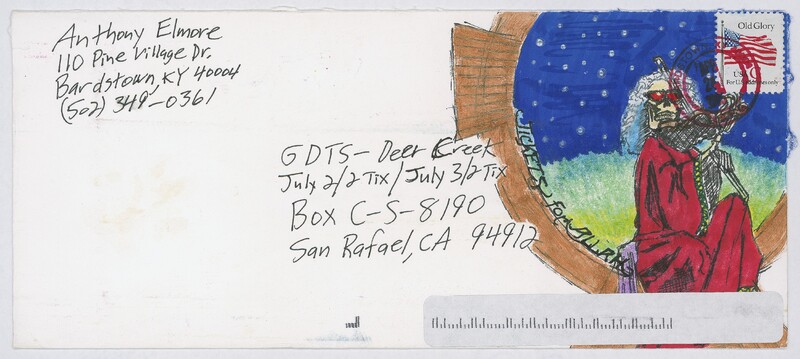 Anthony Elmore
110 Pine Village Dr.
Bardstown, KY 40004
(502) 349-0361
Old Glory
USA
For U.S. addresses only
GDTS - Deer Creek
July 2/2 Tix / July 3/2 Tix
Box C-S-8190
San Rafael, CA 94912
TICKETS FOR